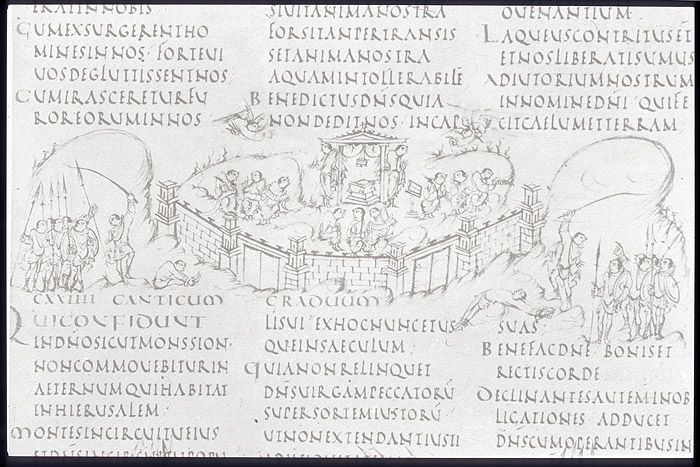 ERATINNOBIS
CUMEXSURGERENTHO
MINESINNOS· FORTEUI
UOSDEGLUTTISSENTNOS
CUMIRASCERETURFU
ROREORUMINNOS
SIUITANIMANOSTRA
FORSITANPERTRANSIS
SETANIMANOSTRA
AQUAMINTOLLERABILE
BENEDICTUSDN̄SQUIA
NONDEDITNOS· INCAP
UENANTIUM·
LAQUEUSCONTRITUSĒT
ETNOSLIBERATISUMUS
ADIUTORIUMNOSTRUM
INNOMINEDN̄I QUIFE
CITCAELUMETTERRAM·
CXXIIII CANTICUM GRADUUM
QUICONFIDUNT
INDN̄OSICUTMONSSION·
NONCOMMOUEBITURIN
AETERNUMQUIHABITAT
INHIERUSALEM·
MONTESINCIRCUITUEIUS
LISUI EXHOCNUNCETUS
QUEINSAECULUM·
QUIANONRELINQUET
DN̄SUIRGAMPECCATORŪ
SUPERSORTEMIUSTORŪ
UTNONEXTENDANTIUSTI
SUAS·
BENEFACDN̄E BONISET
RECTISCORDE
DECLINANTESAUTEMINOB
LIGATIONES ADDUCET
DN̄SCUMOPERANTIBUSIN